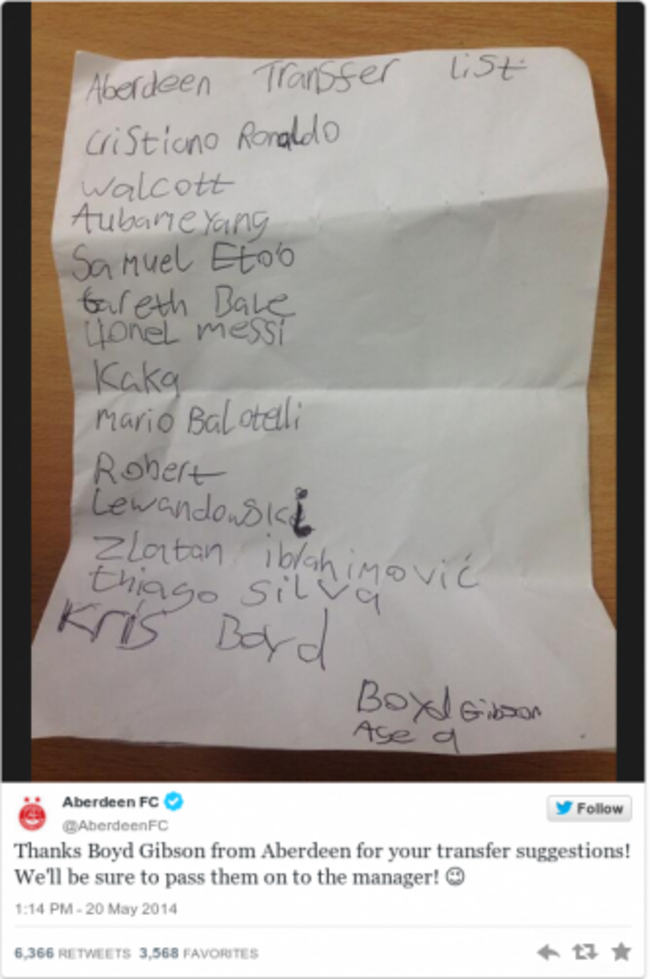 Aberdeen Transfer list
Cristiano Ronaldo
Walcott
Aubameyang
Samuel Eto'o
Gareth Bale
Lionel messi
Kaka
Mario Balotelli
Robert
Lewandowski
Zlatan ibrahimović
thiago silva
Kris Boyd
Boyd Gibson
Age 9
Aberdeen FC
@AberdeenFC
Follow
Thanks Boyd Gibson from Aberdeen for your transfer suggestions!
We'll be sure to pass them on to the manager! 😉
1:14 PM - 20 May 2014
6,366 RETWEETS 3,568 FAVORITES